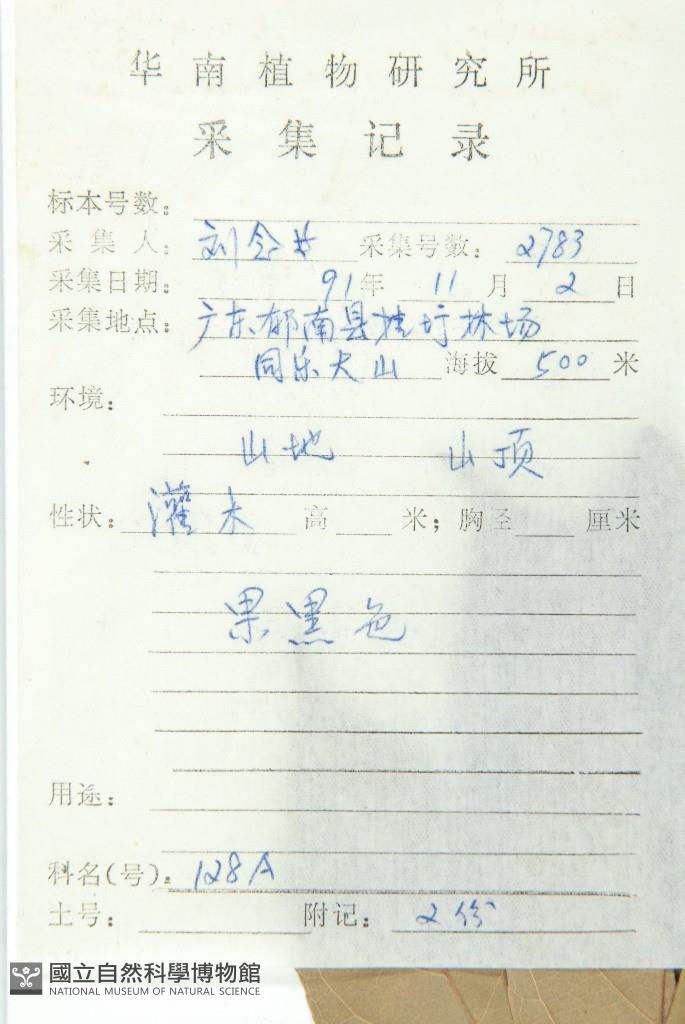 华南植物研究所
采集记录
标本号数：
采集人：刘念 采集号数：2783
采集日期：91年11月2日
采集地点：广东郁南县桂圩林场
同乐大山 海拔 500 米
环境：
山地 山顶
性状：灌木 高 米；胸径 厘米
果黑色
用途：
科名(号)：128A
土号： 附记：2份
國立自然科學博物館
NATIONAL MUSEUM OF NATURAL SCIENCE